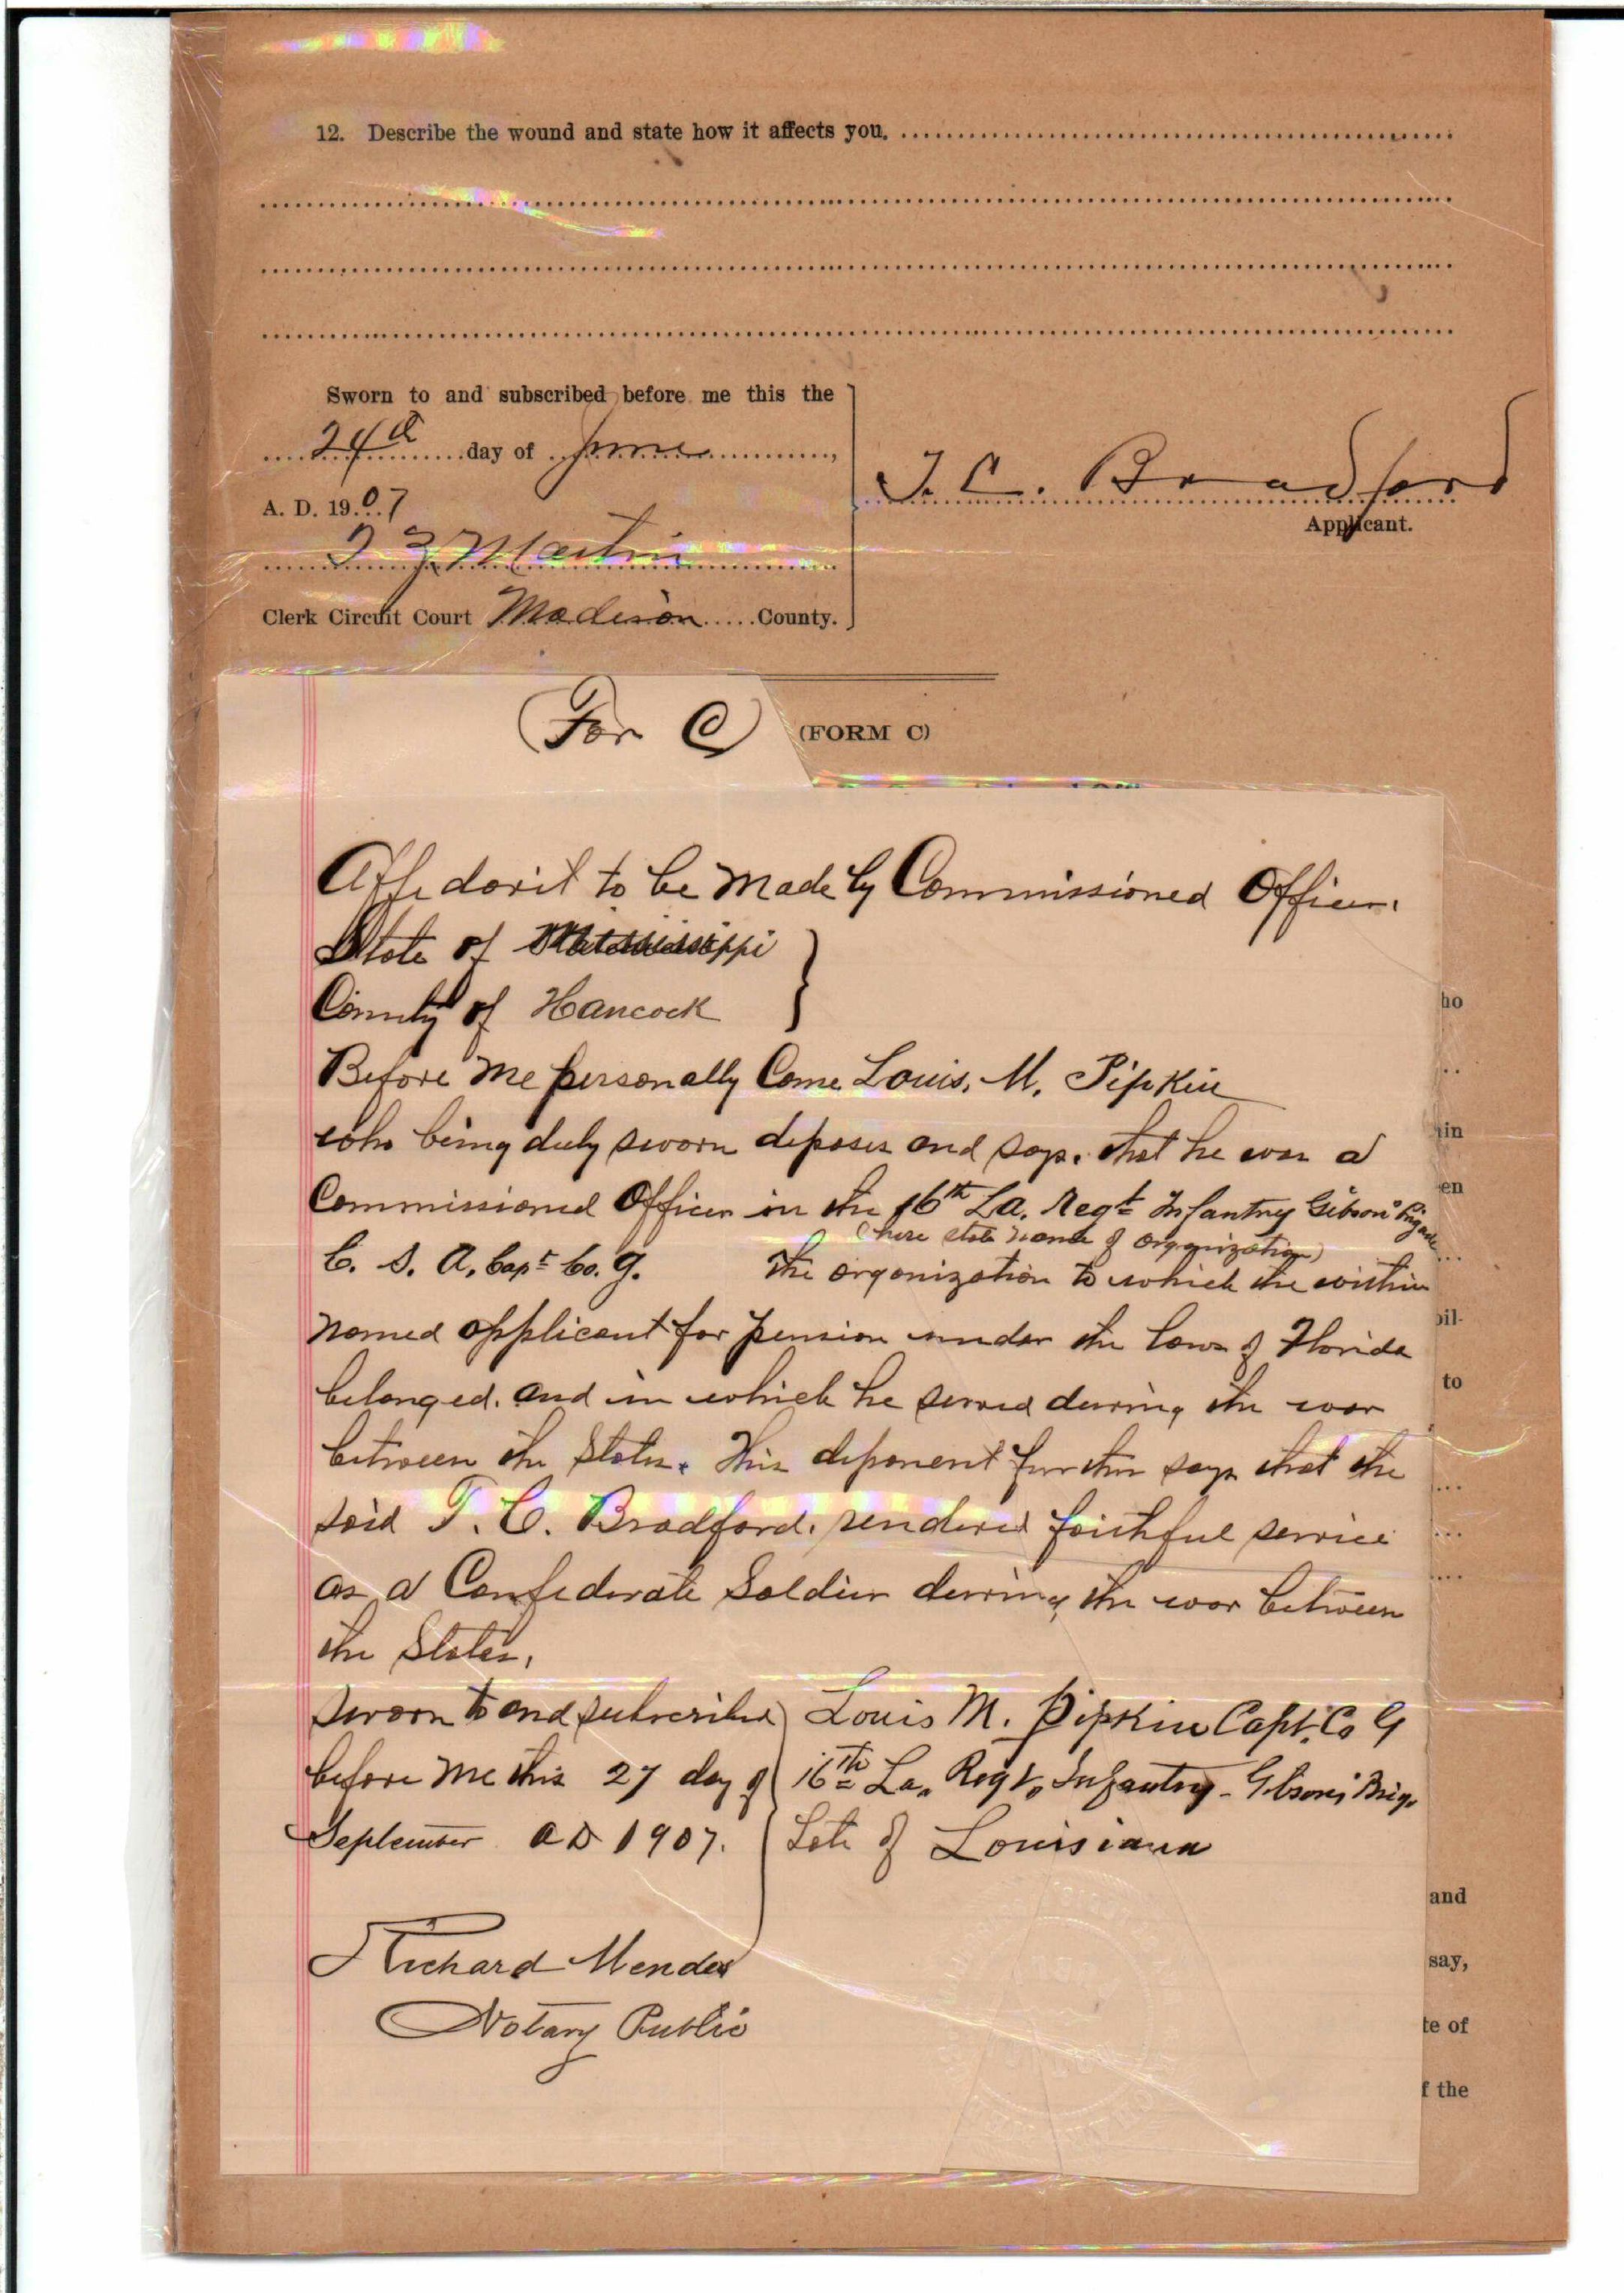 12. Describe the wound and state how it affects you.
Sworn to and subscribed before me this the
24th day of June,
A. D. 1907
T. C. Bradford
Applicant.
T Z Martin
Clerk Circuit Court Madison County.
(For C)
(FORM C)
Affidavit to be Made by Commissioned Officer.
State of Mississippi
County of Hancock
ho
Before Me personally Come Louis. M. Pipkin
who being duly sworn deposes and says. that he was a
in
Commissioned Officer in the 16th La. Regt Infantry Gibson's Brigade
en
(here state name of organization)
C. S. A. Capt Co. G. The organization to which the within
named applicant for pension under the laws of Florida
oil-
belonged. and in which he served during the war
to
between the States. This deponent further says that the
said T. C. Bradford. rendered faithful service
as a Confederate Soldier during the war between
the States.
Sworn to and subscribed
before Me this 27 day of
September A D 1907.
Louis M. Pipkin Capt. Co G
16th La. Regt. Infantry - Gibson's Brig.
of Louisiana
and
Richard Mendes
say,
Notary Public
te of
f the